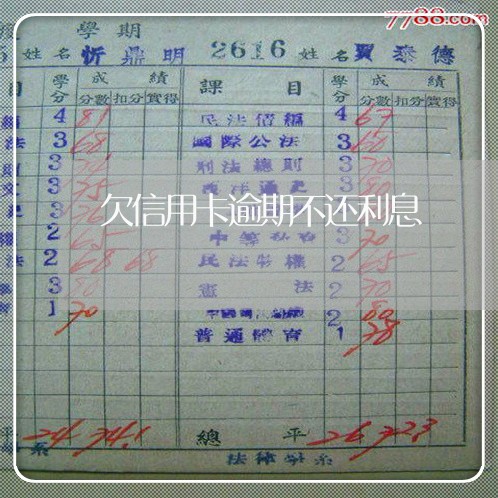 7788.com
學期
姓名 忻鼎明 2616 姓名 賈泰德
目 學分 成績 課目 學分 成績
分數 扣分 實得 分數 扣分 實得
4 81 民法債編 4 67
法 3 68 國際公法 3 60
3 刑法總則 3 70
3 75 西洋通史 3 80
欠信用卡逾期不还利息
2 65 3 70
法 2 68 68 民法物權 2 65
3 80 憲法 2 70
1 70 2 80
普通體育 1 78
平 24 74.1 總平 26 72.3
系 法律學系